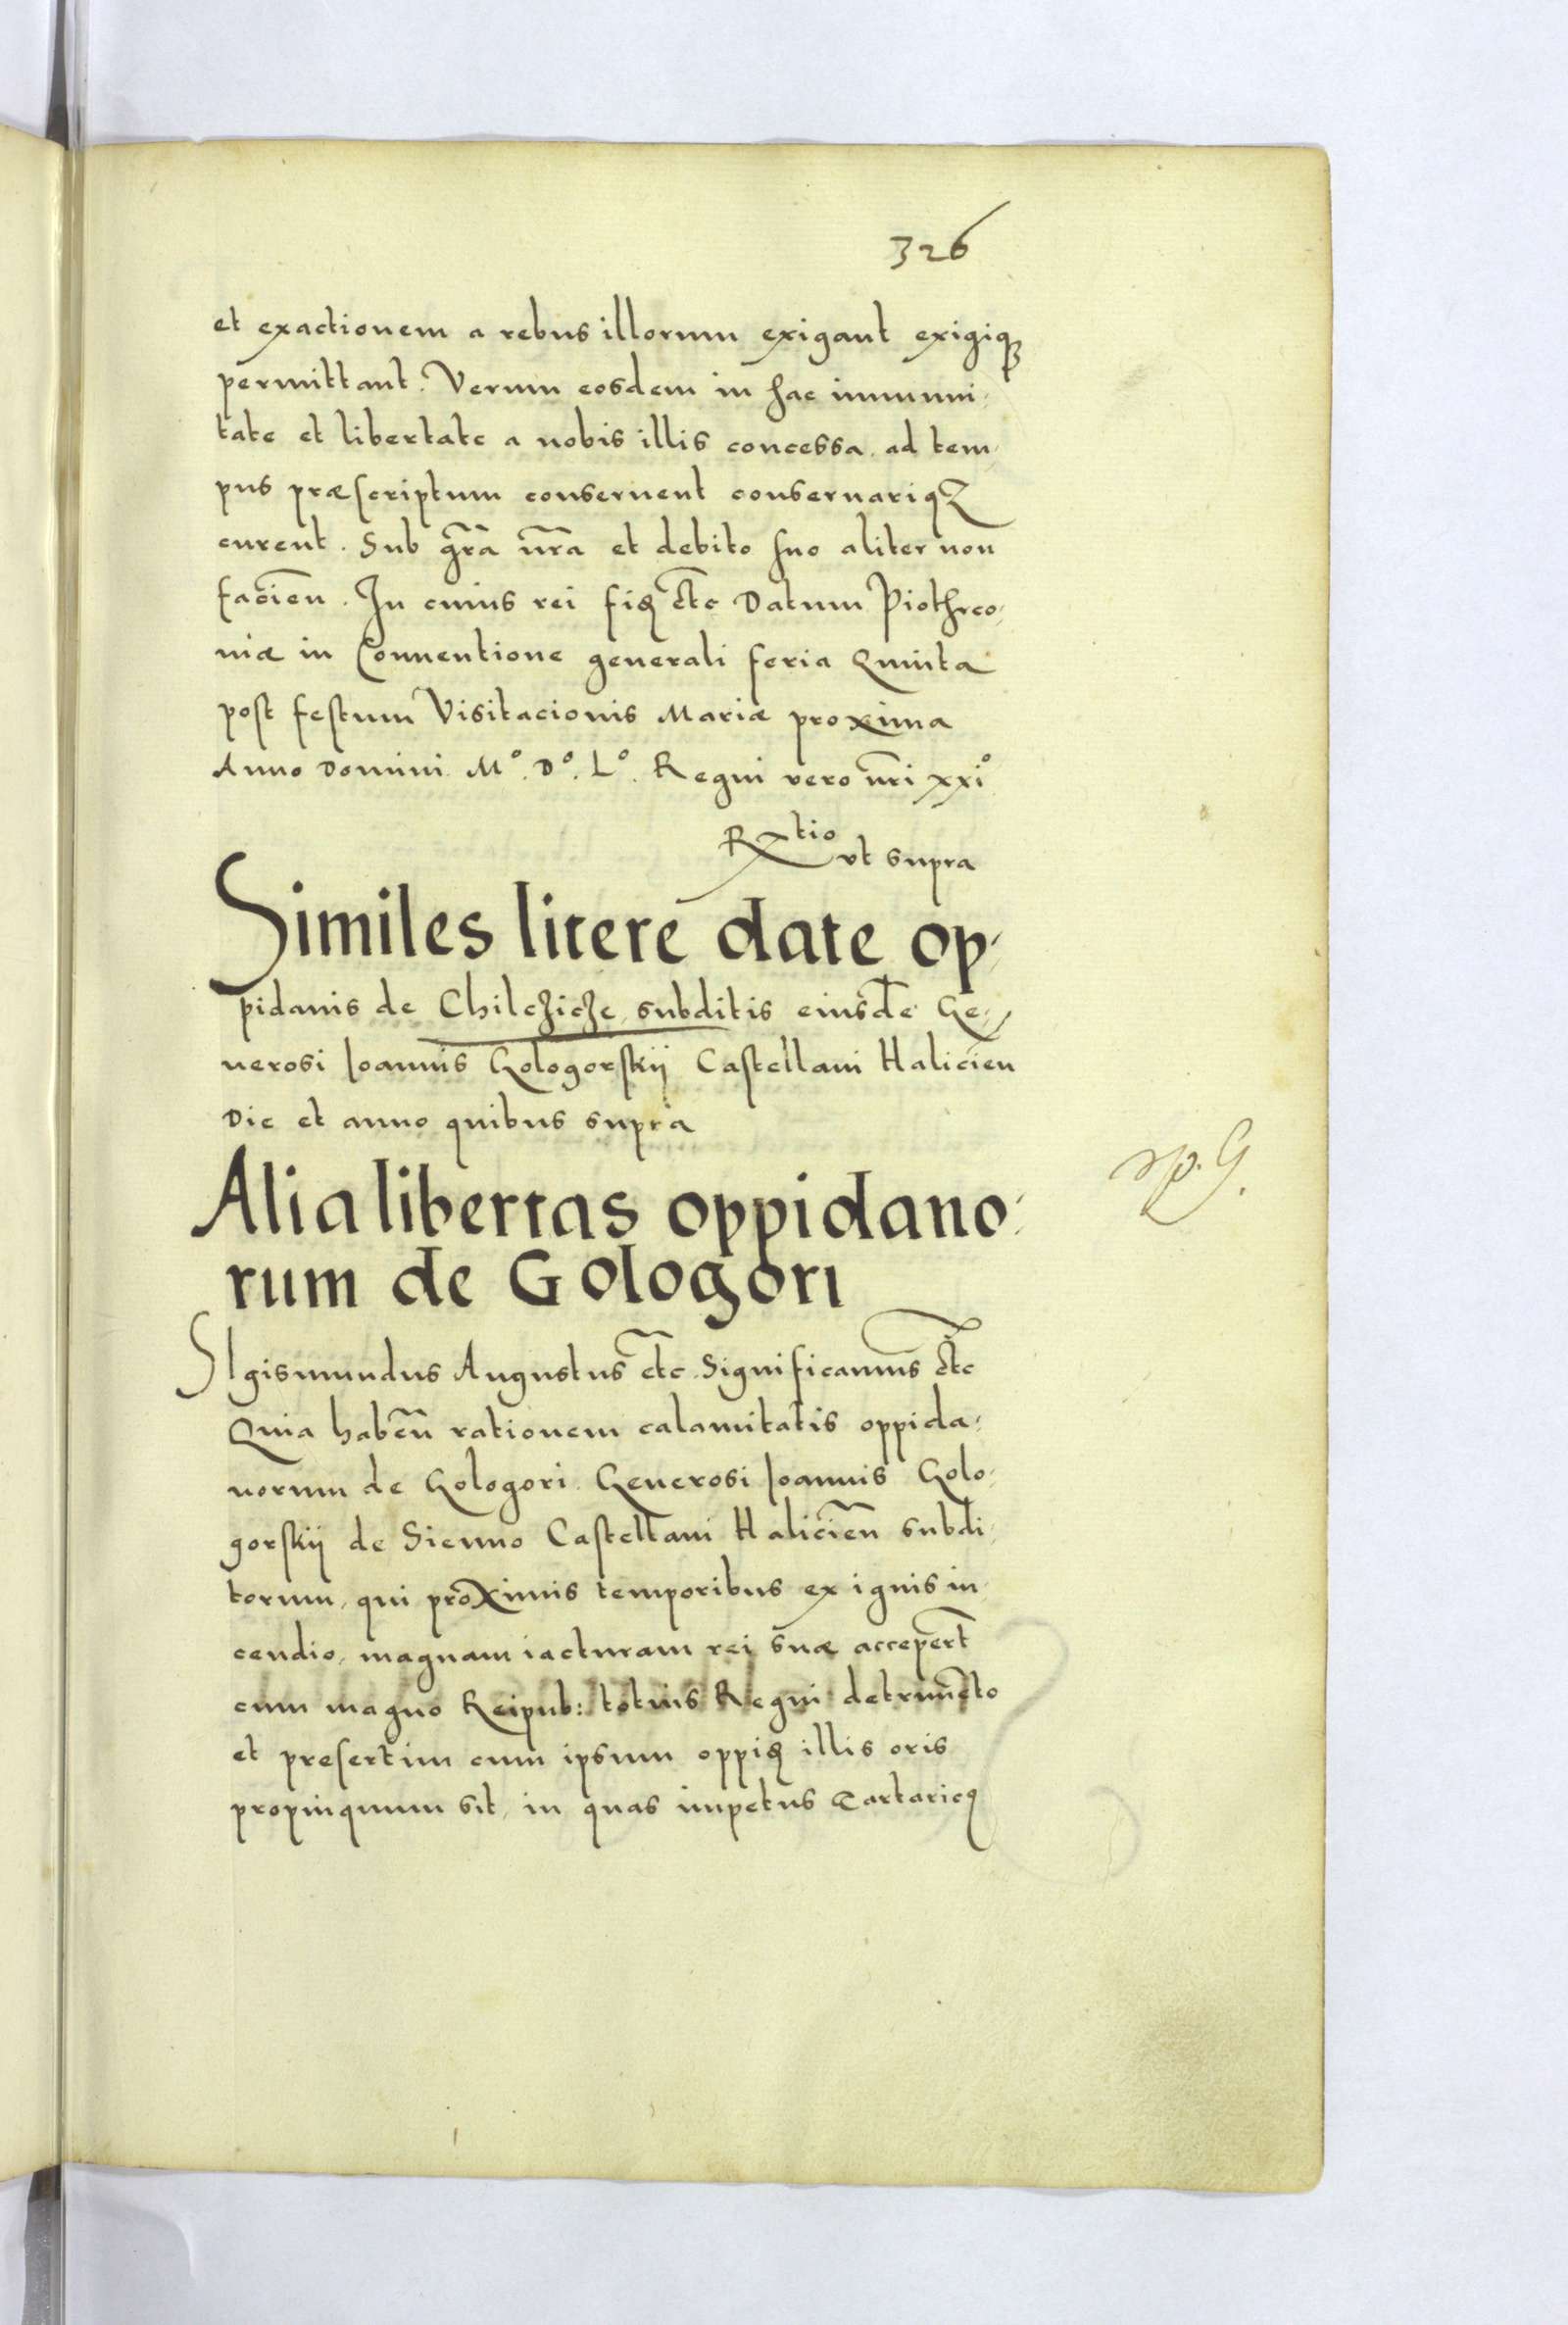 326
et exactionem a rebus illorum exigant exigiq3
permittant. Verum eosdem in hac immuni-
tate et libertate a nobis illis concessa, ad tem-
pus præscriptum conservent conservariqZ
curent. Sub grã nrã et debito suo aliter non
faciẽn. In cuius rei fiꝗ etc̃ Datum Piothrco-
niæ in Conventione generali feria Quinta
post festum Visitacionis Mariæ proxima
Anno Domini M°. D°. L°. Regni vero nrĩ xxi°
Rtio ut supra
Similes litere date op-
pidanis de Chilczicze subditis eiusdẽ Ge-
nerosi Ioannis Gologorskij Castellani Halicien
Die et anno quibus supra
Alia libertas oppidano-
rum de Gologori
SIgismundus Augustus etc̃ Significamus etc̃
Quia habẽn rationem calamitatis oppida-
norum de Gologori Generosi Ioannis Golo-
gorskij de Sienno Castellani Haliciẽn subdi-
torum, qui proximis temporibus ex ignis in-
cendio, magnam iacturam rei suæ accepert̃
cum magno Reipub: totius Regni detrimẽto
et presertim cum ipsum oppiꝗ illis oris
propinquum sit, in quas impetus Tartaricꝗ